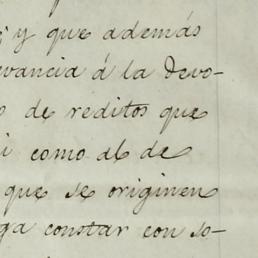 y que además
evancia á la Devo-
de reditos que
i como al de
que se originen
ga constar con so-